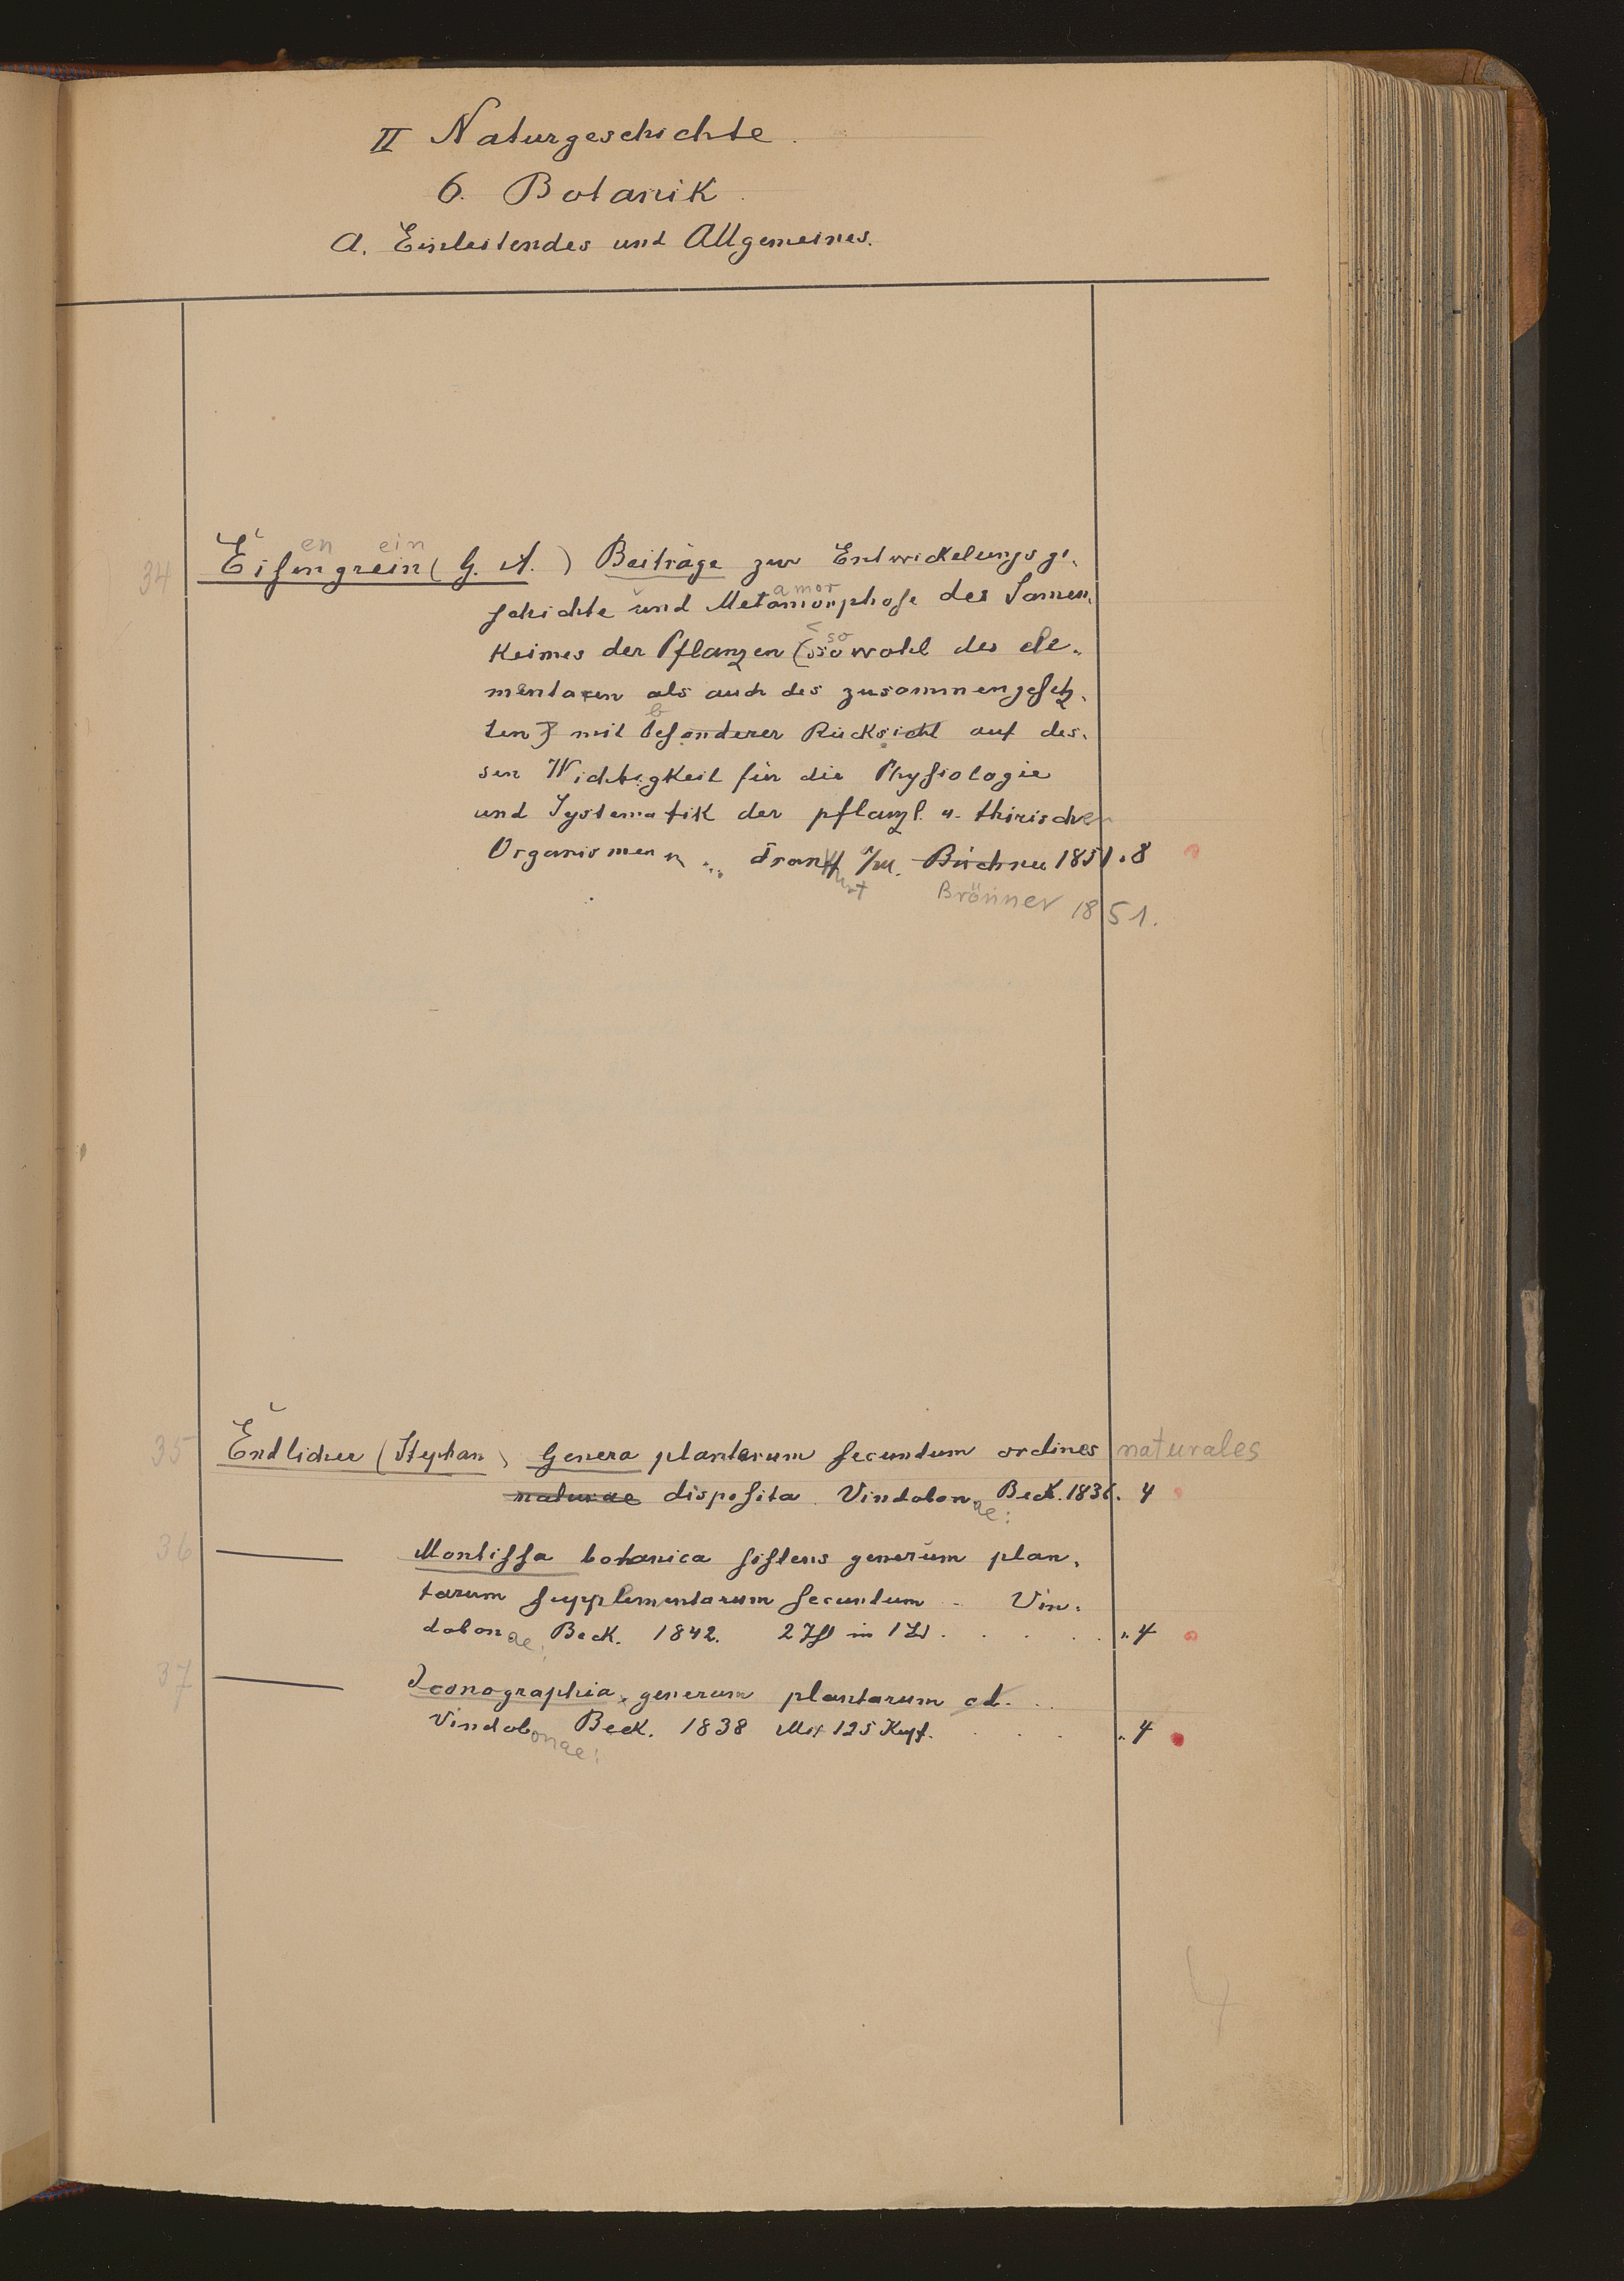 II Naturgeschichte.
6. Botanik.
A. Einleitendes und Allgemeines.
en ein
34 Eisengrein (G. A.) Beiträge zur Entwickelungsge-
amor
schichte und Metamorphose des Samen-
so
Keimes der Pflanzen (sowohl des ele-
mentaren als auch des zusammengesetz-
b
ten) mit besonderer Rücksicht auf des-
sen Wichtigkeit für die Physiologie
und Systematik der pflanzl. u. thirischen
Organismen ... Frankf a/M. Büchner 1851. 8
furt Brönner 1851.
35 Endlicher (Stephan) Genera plantarum secundum ordines naturales
naturae disposita. Vindobonae: Beck. 1836. 4
36 — Mantissa botanica sistens generum plan-
tarum supplementarum secundum .. Vin-
dobonae: Beck. 1842. 2 Thl in 1 Bd. . . . . . 4
37 — Iconographia generum plantarum ed. . .
Vindobonae: Beck. 1838 Mit 125 Kupf. . . . 4
4